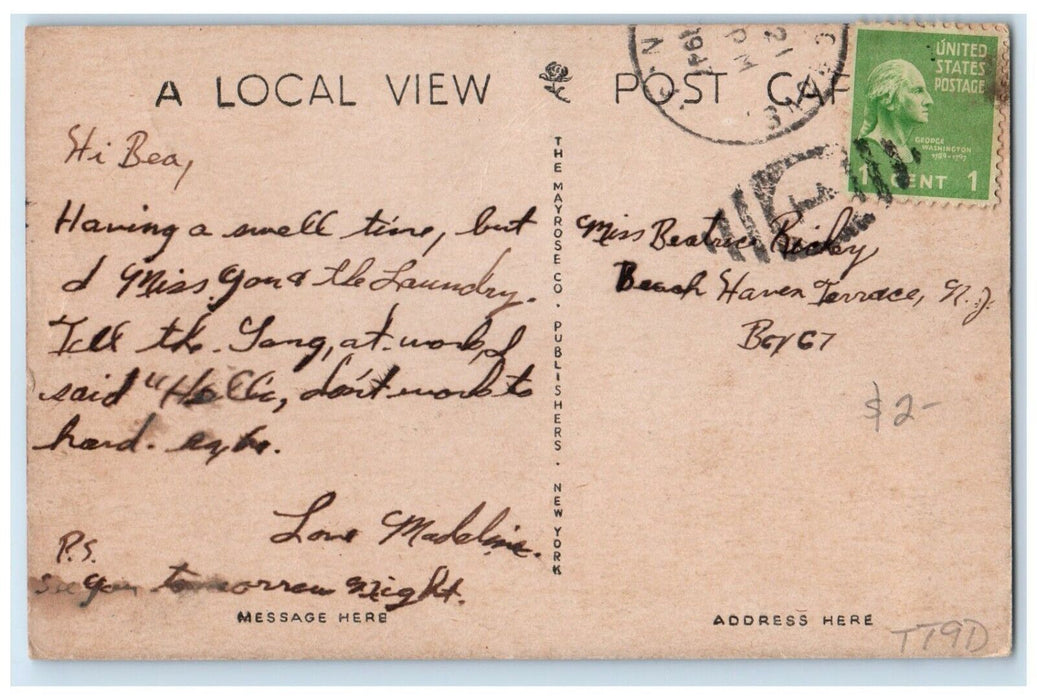 A LOCAL VIEW POST CAR
UNITED
STATES
POSTAGE
GEORGE
WASHINGTON
1789-1797
1 CENT 1
Hi Bea,
Having a swell time, but
I Miss you & the Laundry.
Tell the Gang, at work, I
said "Hello, don't work to
hard.
Love Madeline.
P.S.
see you tomorrow Night.
MESSAGE HERE
THE MAYROSE CO. PUBLISHERS. NEW YORK
Miss Beatrice
Beach Haven Terrace, N.J.
Box 67
$2-
ADDRESS HERE
TT9D